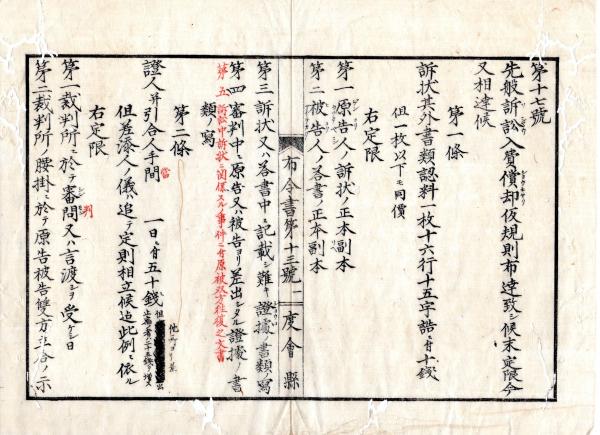 第十七號
先般訴訟入費償却仮規則布達致シ候末定限今
又相達候
第一條
訴状其外書類認料一枚十六行十五字詰ニ付十錢
但一枚以下モ同價
右定限
第一原告人ノ訴状ノ正本副本
第二被告人ノ答書ノ正本副本
布令書第十三號
度會縣
第三訴状又ハ答書中ニ記載シ難キ證據書類ノ寫
第四審判中ニ原告又ハ被告ヨリ差出シタル證據ノ書
類ノ寫
第五訴訟中訴状ニ関係スル事件ニ付原被双方往復之文書
第二條
證人并引合人手間 一日ニ付五十錢
但差添人ノ儀ハ追テ定則相立候迄此例ニ依ル
右定限
第一裁判所ニ於テ審問又ハ言渡シヲ受ケシ日
判
第二裁判所ノ腰掛ニ於テ原告被告雙方立合ノ示